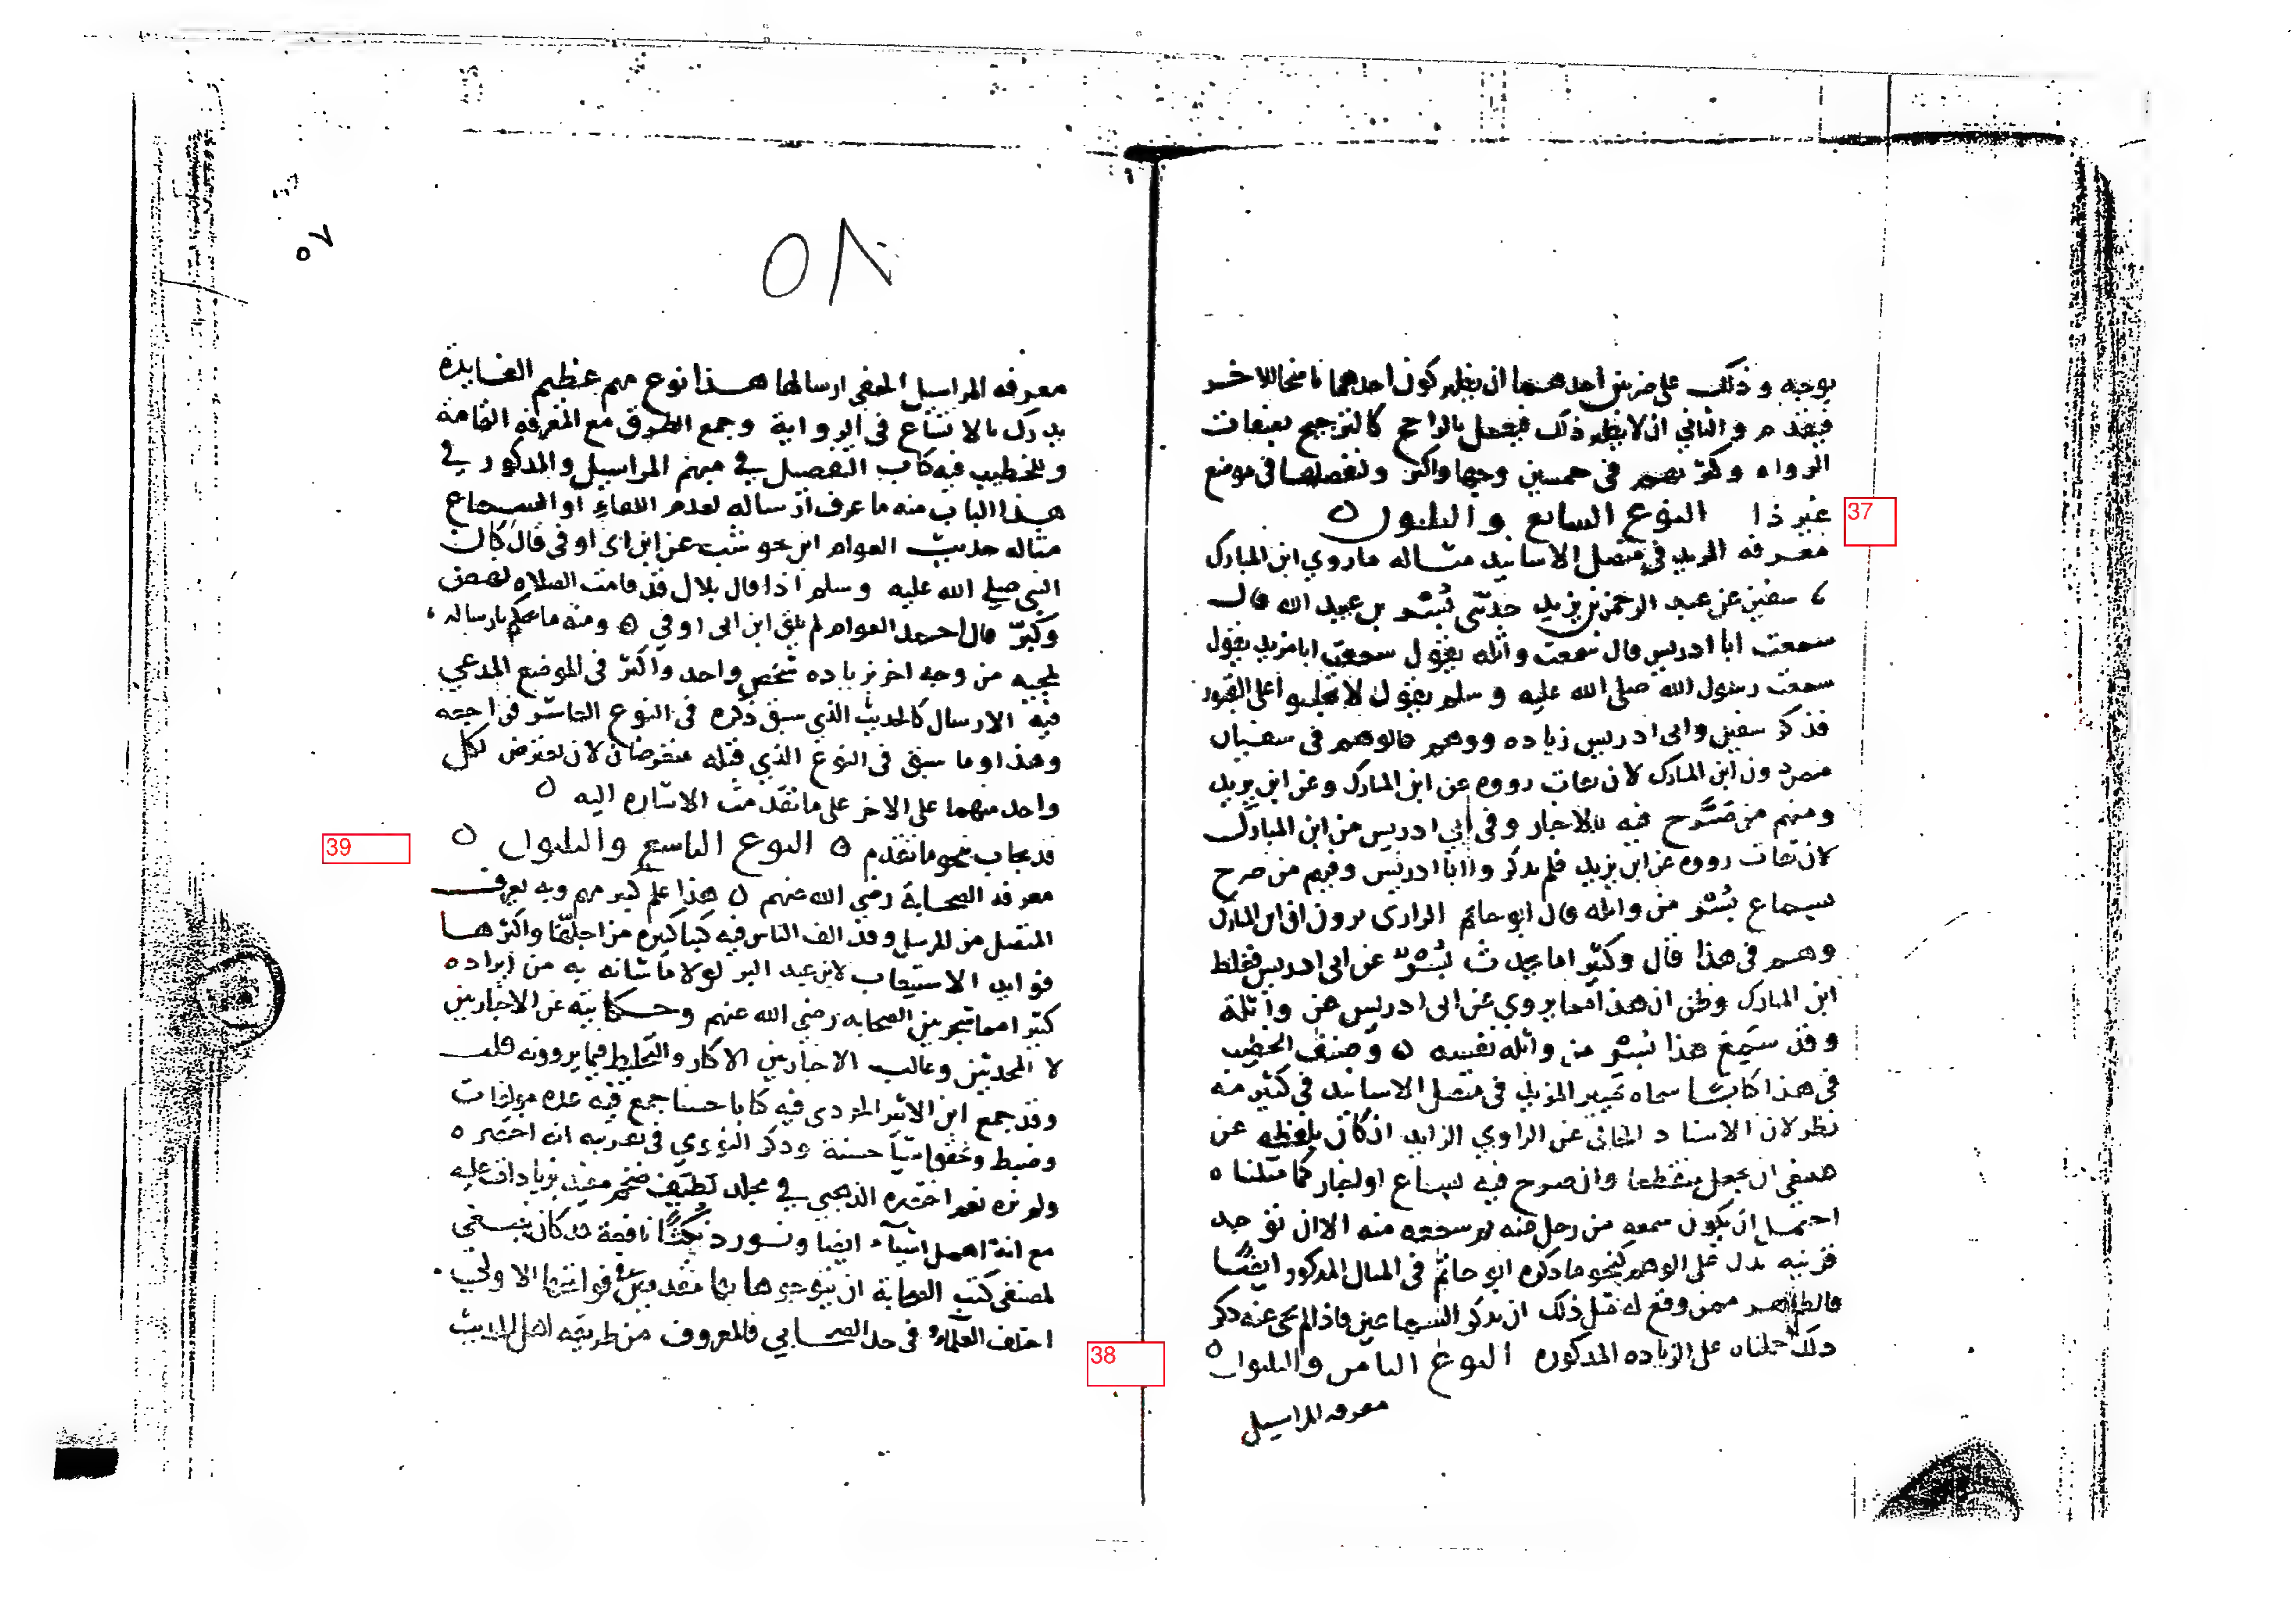 يوجه وذلك على ضربين أحدهما ان يظهر كون احدهما ناسخا للاخر
فيقدم والثاني ان لا يظهر ذلك فيعمل بالراجح كالترجيح بصفات
الرواه وكثرتهم في خمسين وجها واكثر ولتفصيلها في موضع
غير ذا النوع السابع والثلثون ٥
37
معرفه المزيد في متصل الاسانيد مثاله ما روي ابن المبارك
سفين عن عبد الرحمن بن يزيد حدثني بُسْر بن عبيد الله قال
سمعت ابا ادريس قال سمعت واثله يقول سمعت ابا مرثد يقول
سمعت رسول الله صلى الله عليه وسلم يقول لا تجلسوا على القبور
فذكر سفين وابى ادريس زياده ووهم فالوهم في سفيان
ممن دون ابن المبارك لان ثقات رووه عن ابن المبارك وعن ابن يزيد
ومنهم من صَرَّح فيه بالاخبار وفي أبي ادريس من ابن المبارك
لان ثقات رووه عن ابن يزيد فلم يذكروا ابا ادريس وفيهم من صرح
بسماع بُسْر من واثله قال ابو حاتم الرازى يرون ان ابن المبارك
وهم في هذا قال وكثيرا ما يحدث بُسْر عن ابى ادريس فغلط
ابن المبارك وظن ان هذا مما يروي عن ابى ادريس عن واثلة
وقد سَمِعَ هذا بسر من واثله نفسه ٥ وصنف الخطيب
في هذا كتابا سماه تمييز المزيد في متصل الاسانيد في كثير منه
نظر لان الاسناد الخالي عن الراوي الزايد ان كان بلفظه عن
فينبغي ان يجعل منقطعا وان صرح فيه بسماع او اخبار كما مثلناه
احتمل ان يكون سمعه من رجل عنه ثم سمعه منه الا ان توجد
قرينه تدل على الوهم كنحو ما ذكره ابو حاتم في المثال المذكور ايضًا
فالظاهر ممن وقع له مثل ذلك ان يذكر السماعين فاذا لم يجى عنه ذكر
ذلك حملناه على الزياده المذكوره النوع الثامن والثلثون ٥
38
معرفه المراسيل
٥٨
معرفه المراسيل الخفي ارسالها هذا نوع مهم عظيم الفايدة
يدرك بالاتساع في الرواية وجمع الطرق مع المعرفه التامة
وللخطيب فيه كتاب التفصيل في مبهم المراسيل والمذكور في
هذا الباب منه ما عرف ارساله لعدم اللقاء او السماع
مثاله حديث العوام ابن حوشب عن ابن ابى اوفى قال كان
النبي صلى الله عليه وسلم اذا قال بلال قد قامت الصلاه نهض
وكبرّ قال احمد العوام لم يلق ابن ابى اوفي ٥ ومنه ما حكم بارساله
لمجيه من وجه اخر بزياده شخص واحد واكثر في الموضع المدعي
فيه الارسال كالحديث الذي سبق ذكره في النوع العاشر فراجعه
وهذا وما سبق في النوع الذي قبله متعرضان لان يعترض بكل
واحد منهما على الاخر على ما تقدمت الاشاره اليه ٥
قد يجاب بنحو ما تقدم ٥ النوع التاسع والثلثون ٥
39
معرفه الصحابة رضي الله عنهم ٥ هذا علم كبير مهم وبه يعرف
المتصل من المرسل وقد الف الناس فيه كتبا كثيره من اجلّها واكثرها
فوايد الاستيعاب لابن عبد البر لولا ما شانه به من إيراده
كثيرا مما شجر بين الصحابه رضي الله عنهم وحكايته عن الاخباريين
لا المحدثين وغالب الاخباريين الاكثار والتخليط فيما يروونه قلت
وقد جمع ابن الاثير الجزري فيه كتابا حسنا جمع فيه عده مولفات
وضبط وحقق اشياَ حسنة وذكر النووي في تقريبه انه اختصره
ولم نره نعم اختصره الذهبي في مجلد لطيف ضخم مفيد بزيادات عليه
مع انه اهمل اشياء ايضا ونسورد نُكَتًا نافعة قد كان ينبغي
لمصنفي كتب الصحابة ان يتوجوها بها مقدمين في فواتحها الاولى
اختلف العلماء في حد الصحابي فالمعروف من طريقه اهل الحديث